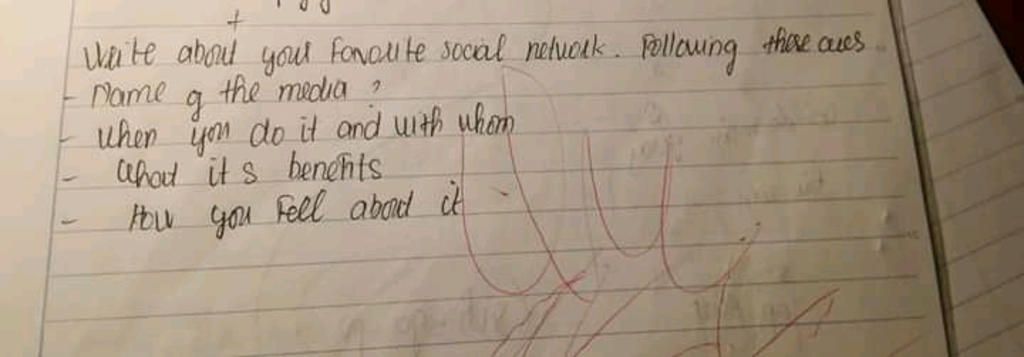 Write about your favourite social network. Following these cues
- Name of the media ?
- When you do it and with whom
- What it s benefits
- How you feel about it